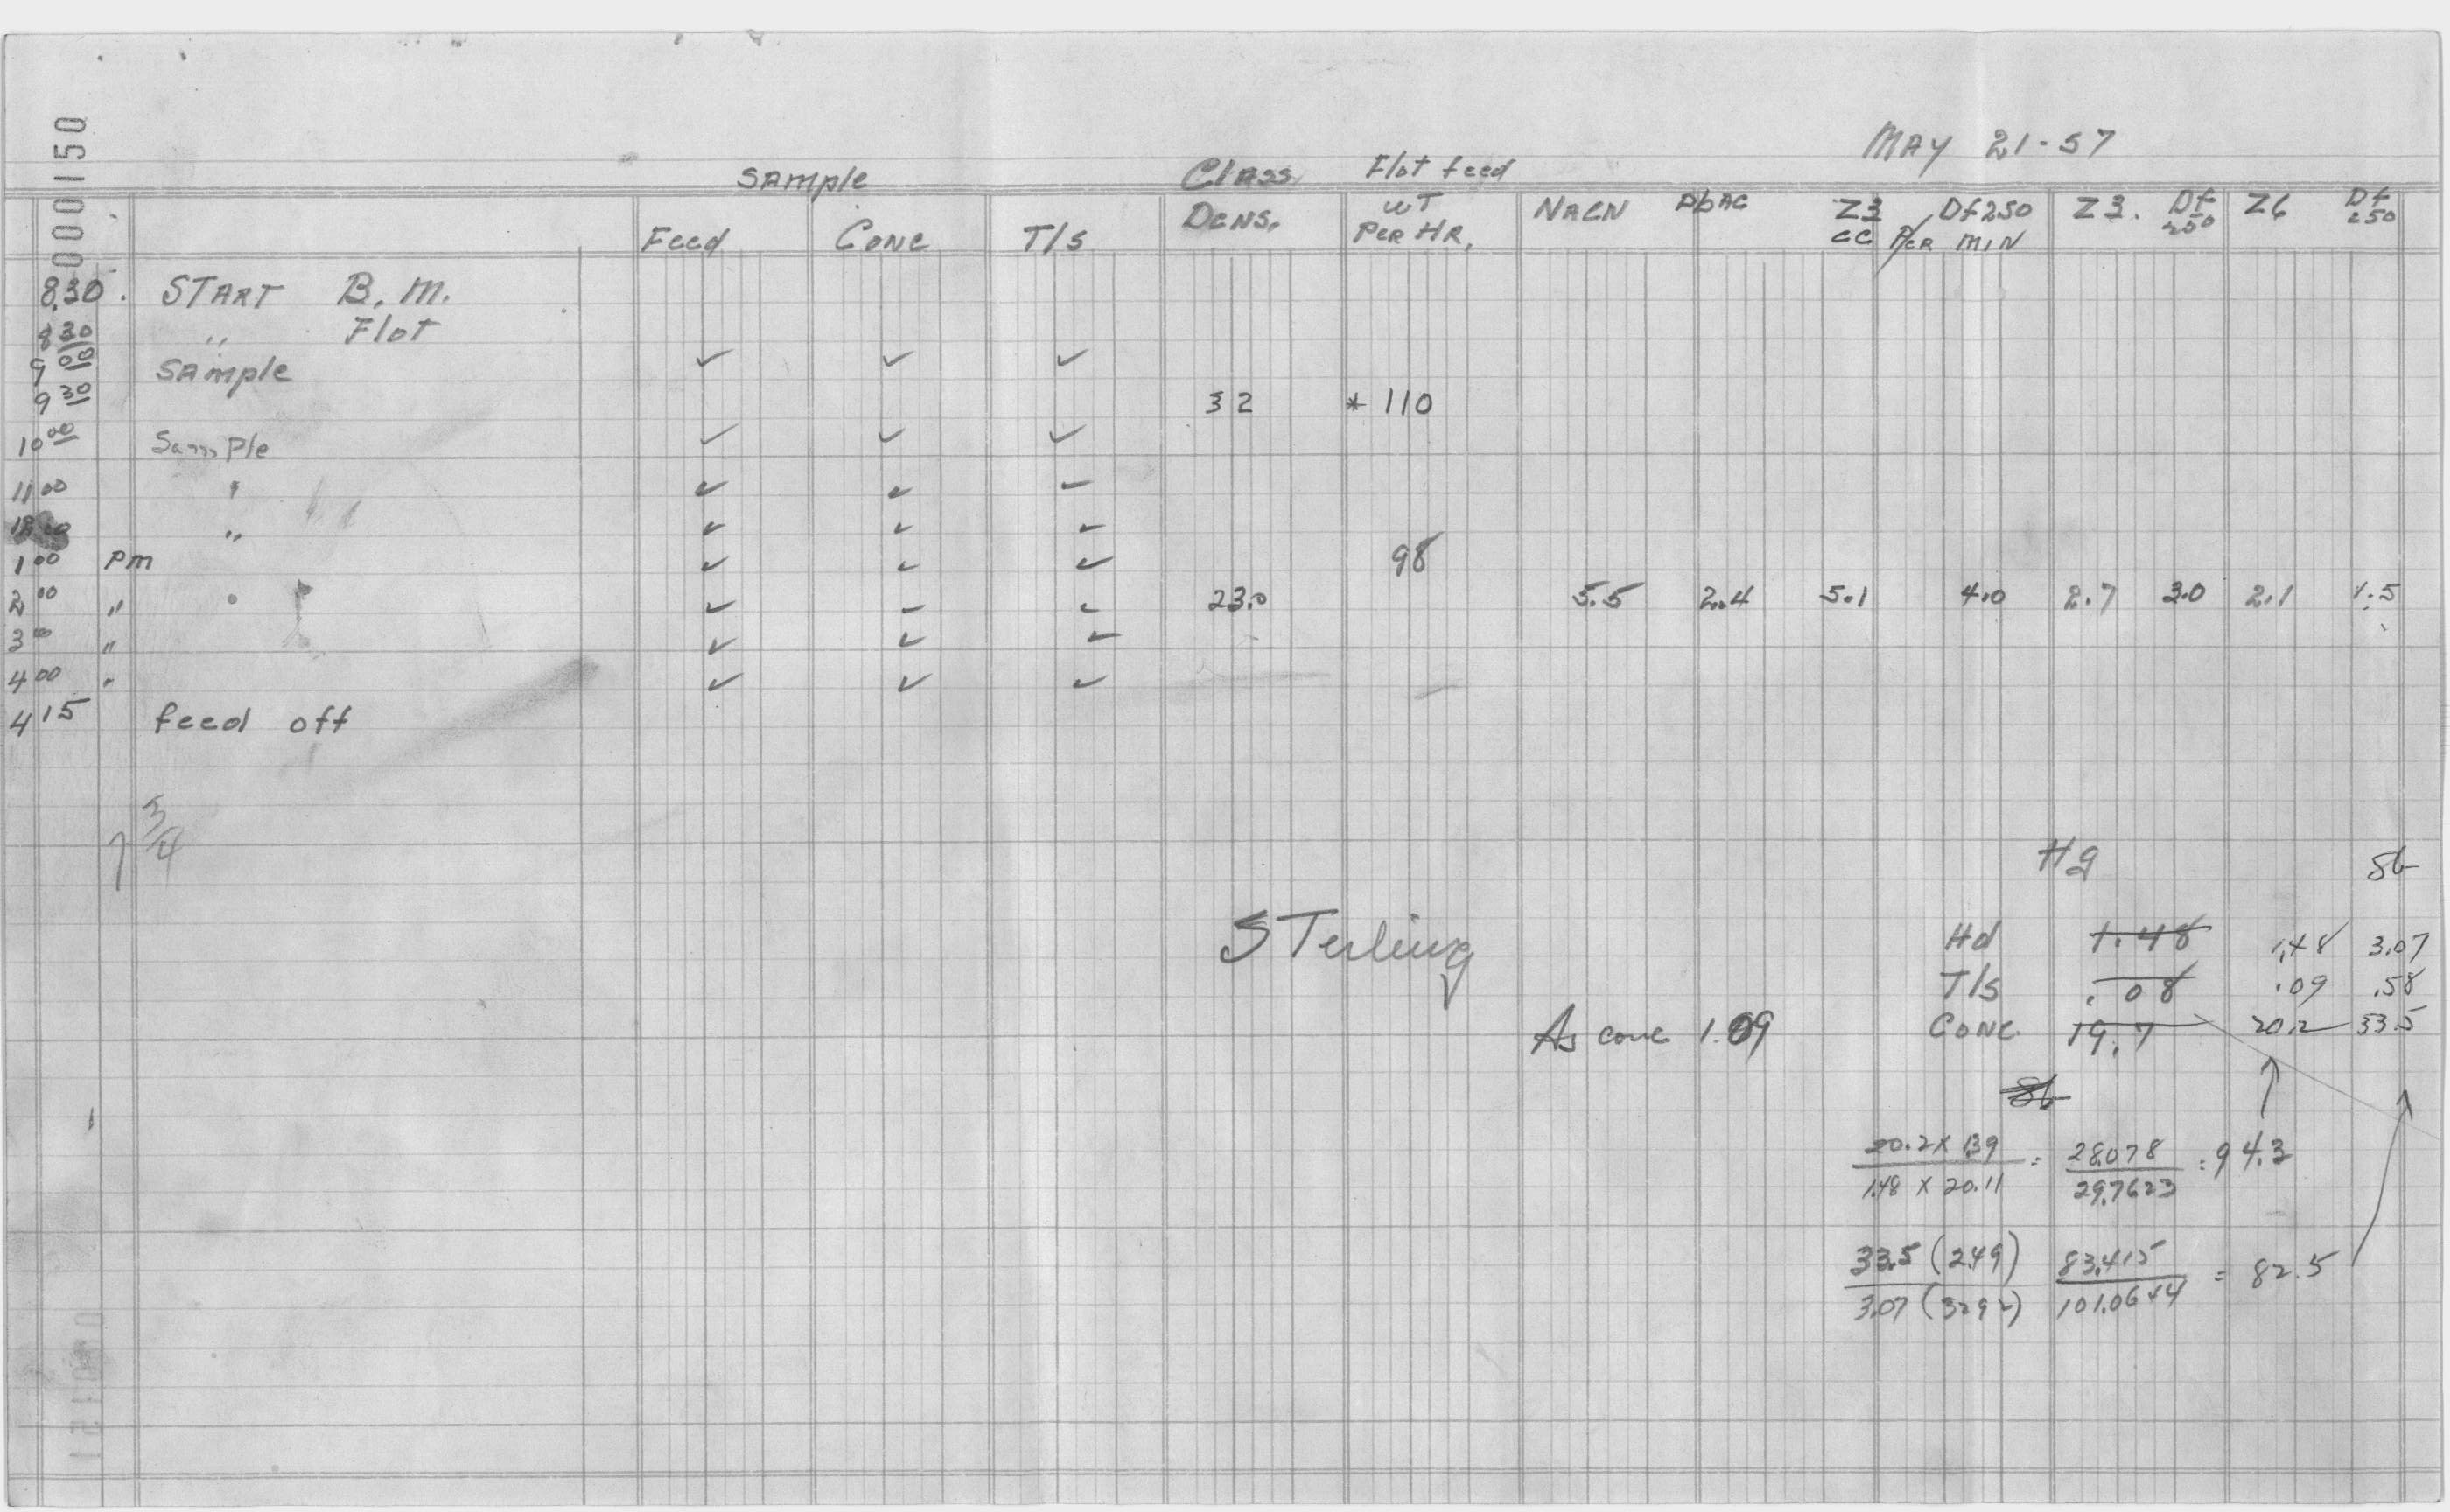 0000150
MAY 21-57
SAMPLE Class. Flot feed
Feed Conc T/s DENS. WT PER HR. NACN PbAC Z3 Df250 Z3. Df 250 Z6 Df 250
CC / PER MIN
8.30. START B.M.
8 30 " Flot
9 00 SAMPLE ✓ ✓ ✓
9 30 32 * 110
10 00 Sample ✓ ✓ ✓
11 00 " ✓ ✓ ✓
12 00 " ✓ ✓ ✓
1 00 PM ✓ ✓ ✓ 98
2 00 " " ✓ ✓ ✓ 23.0 5.5 2.4 5.1 4.0 2.7 3.0 2.1 1.5
3 00 " ✓ ✓ ✓
4 00 " ✓ ✓ ✓
4 15 feed off
7 3/4
Hg Sb
STerling
Hd 1.48 1.48 3.07
T/s .08 .09 .58
CONC. 19.7 20.2 33.5
As conc 1.09
Sb
20.2 x 1.39 / 1.48 x 20.11 = 28.078 / 29.7623 = 94.3
33.5 (2.49) / 3.07 (32.92) 83.415 / 101.0644 = 82.5